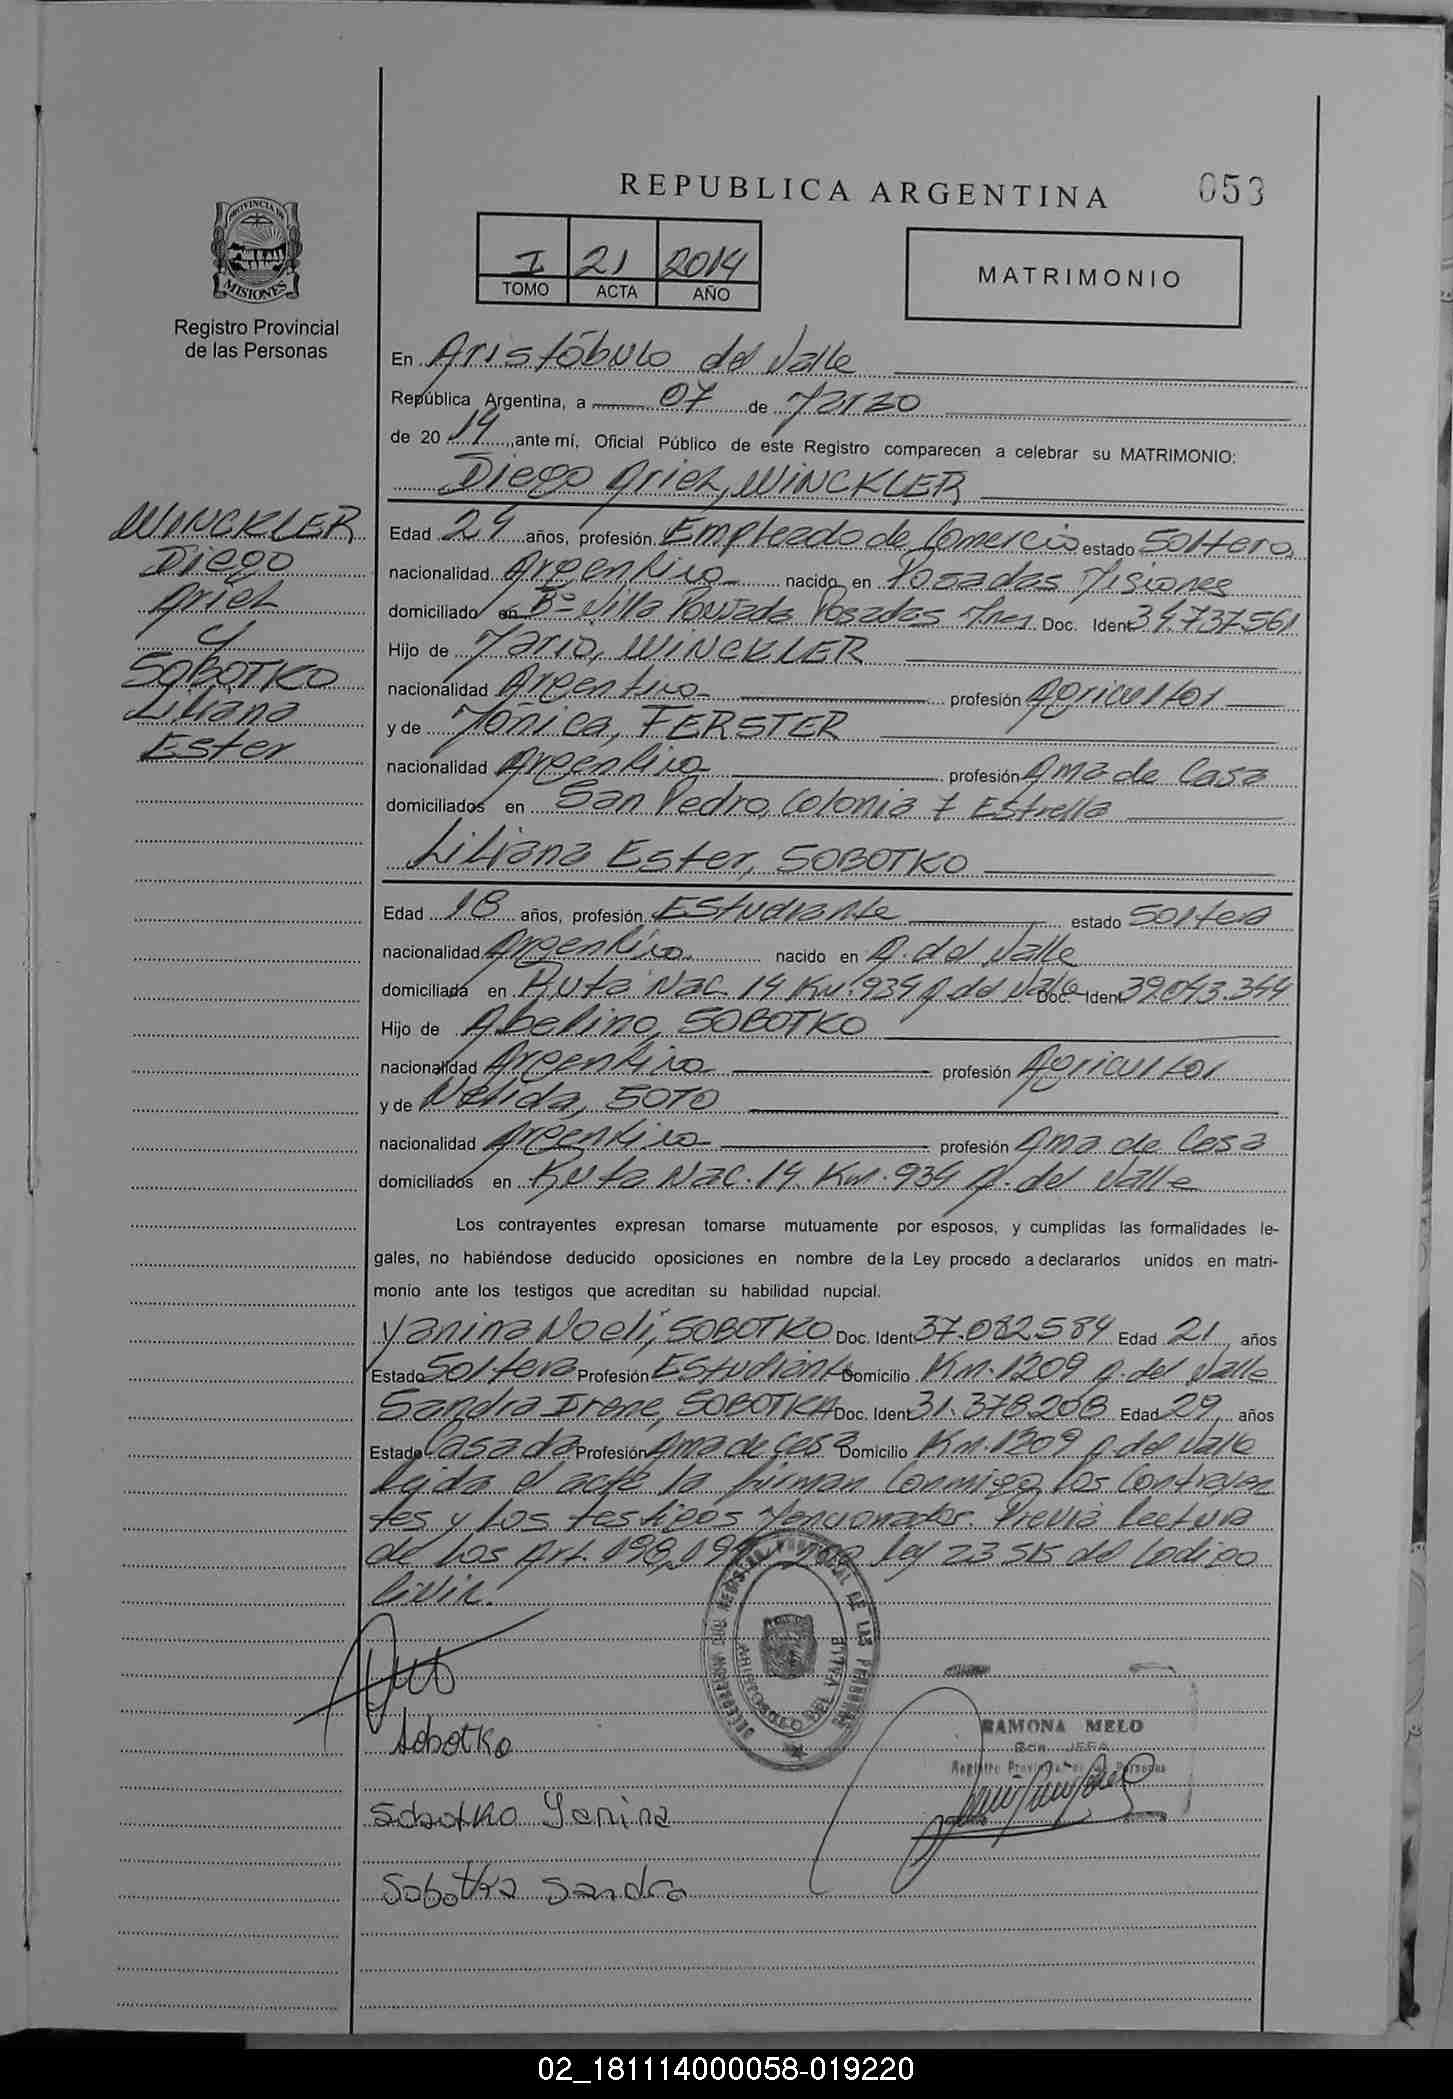 REPUBLICA ARGENTINA
053
PROVINCIA DE
MISIONES
Registro Provincial
de las Personas
I 21 2014
TOMO ACTA AÑO
MATRIMONIO
En Aristóbulo del Valle
República Argentina, a 07 de Marzo
de 20 14, ante mí, Oficial Público de este Registro comparecen a celebrar su MATRIMONIO:
Diego Ariel, WINCKLER
WINCKLER
Diego
Ariel
y
SOBOTKO
Liliana
Ester
Edad 24 años, profesión Empleado de Comercio estado Soltero
nacionalidad Argentino nacido en Posadas Misiones
domiciliado en B° Villa Poujade Posadas Mnes Doc. Ident 34.737.561
Hijo de Mario, WINCKLER
nacionalidad Argentino profesión Agricultor
y de Mónica, FERSTER
nacionalidad Argentina profesión Ama de Casa
domiciliados en San Pedro, Colonia 7 Estrella
Liliana Ester, SOBOTKO
Edad 18 años, profesión Estudiante estado Soltera
nacionalidad Argentina nacido en A. del Valle
domiciliada en Ruta Nac. 14 Km. 934 A. del Valle Doc. Ident 39.043.344
Hijo de Abelino, SOBOTKO
nacionalidad Argentino profesión Agricultor
y de Nelida, SOTO
nacionalidad Argentina profesión Ama de Casa
domiciliados en Ruta Nac. 14 Km. 934 A. del Valle
Los contrayentes expresan tomarse mutuamente por esposos, y cumplidas las formalidades le-
gales, no habiéndose deducido oposiciones en nombre de la Ley procedo a declararlos unidos en matri-
monio ante los testigos que acreditan su habilidad nupcial.
Yanina Noeli, SOBOTKO Doc. Ident 37.082.584 Edad 21 años
Estado Soltera Profesión Estudiante Domicilio Km. 1209 A. del Valle
Sandra Irene, SOBOTKA Doc. Ident 31.378.208 Edad 29 años
Estado Casada Profesión Ama de Casa Domicilio Km. 1309 A. del Valle
Leida el acta la firman conmigo los Contrayen
tes y los testigos Mencionados. Previa Lectura
de los Art. 198, 199 200 Ley 23 515 del Codigo
Civil.
REGISTRO PROVINCIAL DE LAS PERSONAS
ARISTOBULO DEL VALLE
Sobotko
RAMONA MELO
JEFA
Registro Provincial de las Personas
Sobotko Yanina
Sobotka Sandra
02_181114000058-019220